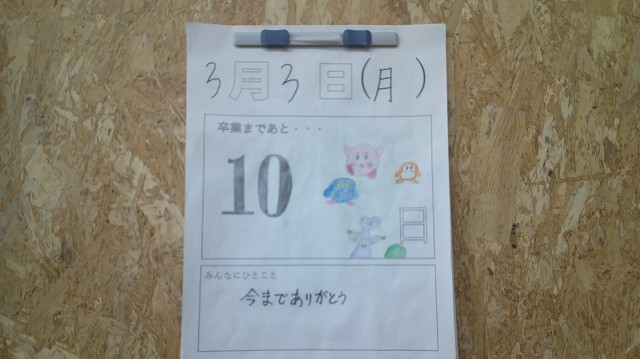 3月3日(月)
卒業まであと・・・
10日
みんなにひとこと
今までありがとう